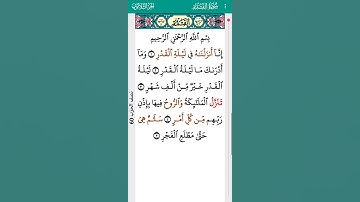 سُورَةُ القَدۡرِ
الجُزۡءُ الثَّلَاثُونَ
بِسۡمِ ٱللَّهِ ٱلرَّحۡمَٰنِ ٱلرَّحِيمِ
إِنَّآ أَنزَلۡنَٰهُ فِي لَيۡلَةِ ٱلۡقَدۡرِ ١ وَمَآ
أَدۡرَىٰكَ مَا لَيۡلَةُ ٱلۡقَدۡرِ ٢ لَيۡلَةُ
ٱلۡقَدۡرِ خَيۡرٞ مِّنۡ أَلۡفِ شَهۡرٖ ٣
تَنَزَّلُ ٱلۡمَلَٰٓئِكَةُ وَٱلرُّوحُ فِيهَا بِإِذۡنِ
رَبِّهِم مِّن كُلِّ أَمۡرٖ ٤ سَلَٰمٌ هِيَ
حَتَّىٰ مَطۡلَعِ ٱلۡفَجۡرِ ٥